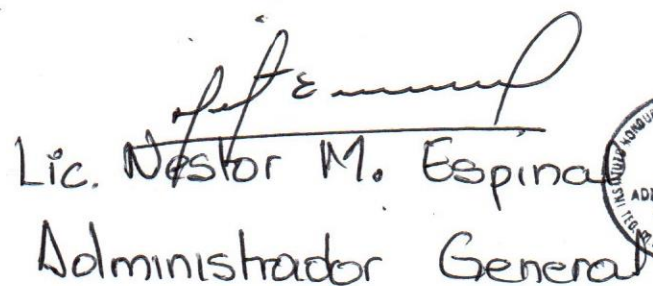 Lic. Nestor M. Espinal
Administrador General